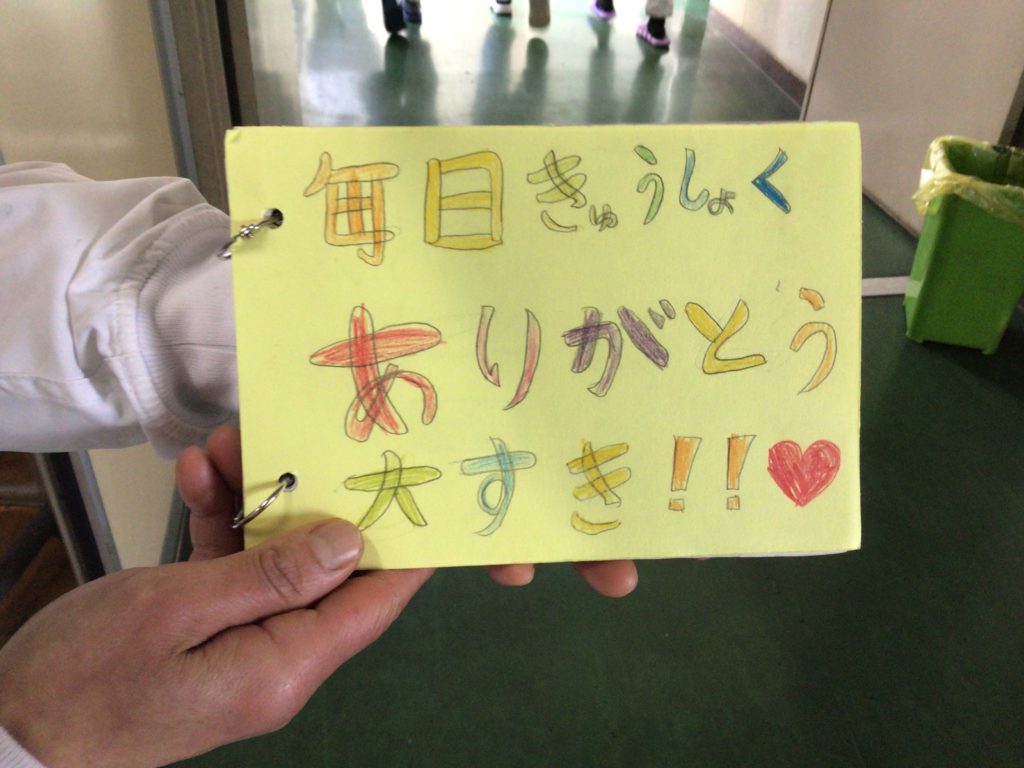 毎日きゅうしょく
ありがとう
大すき!!♥